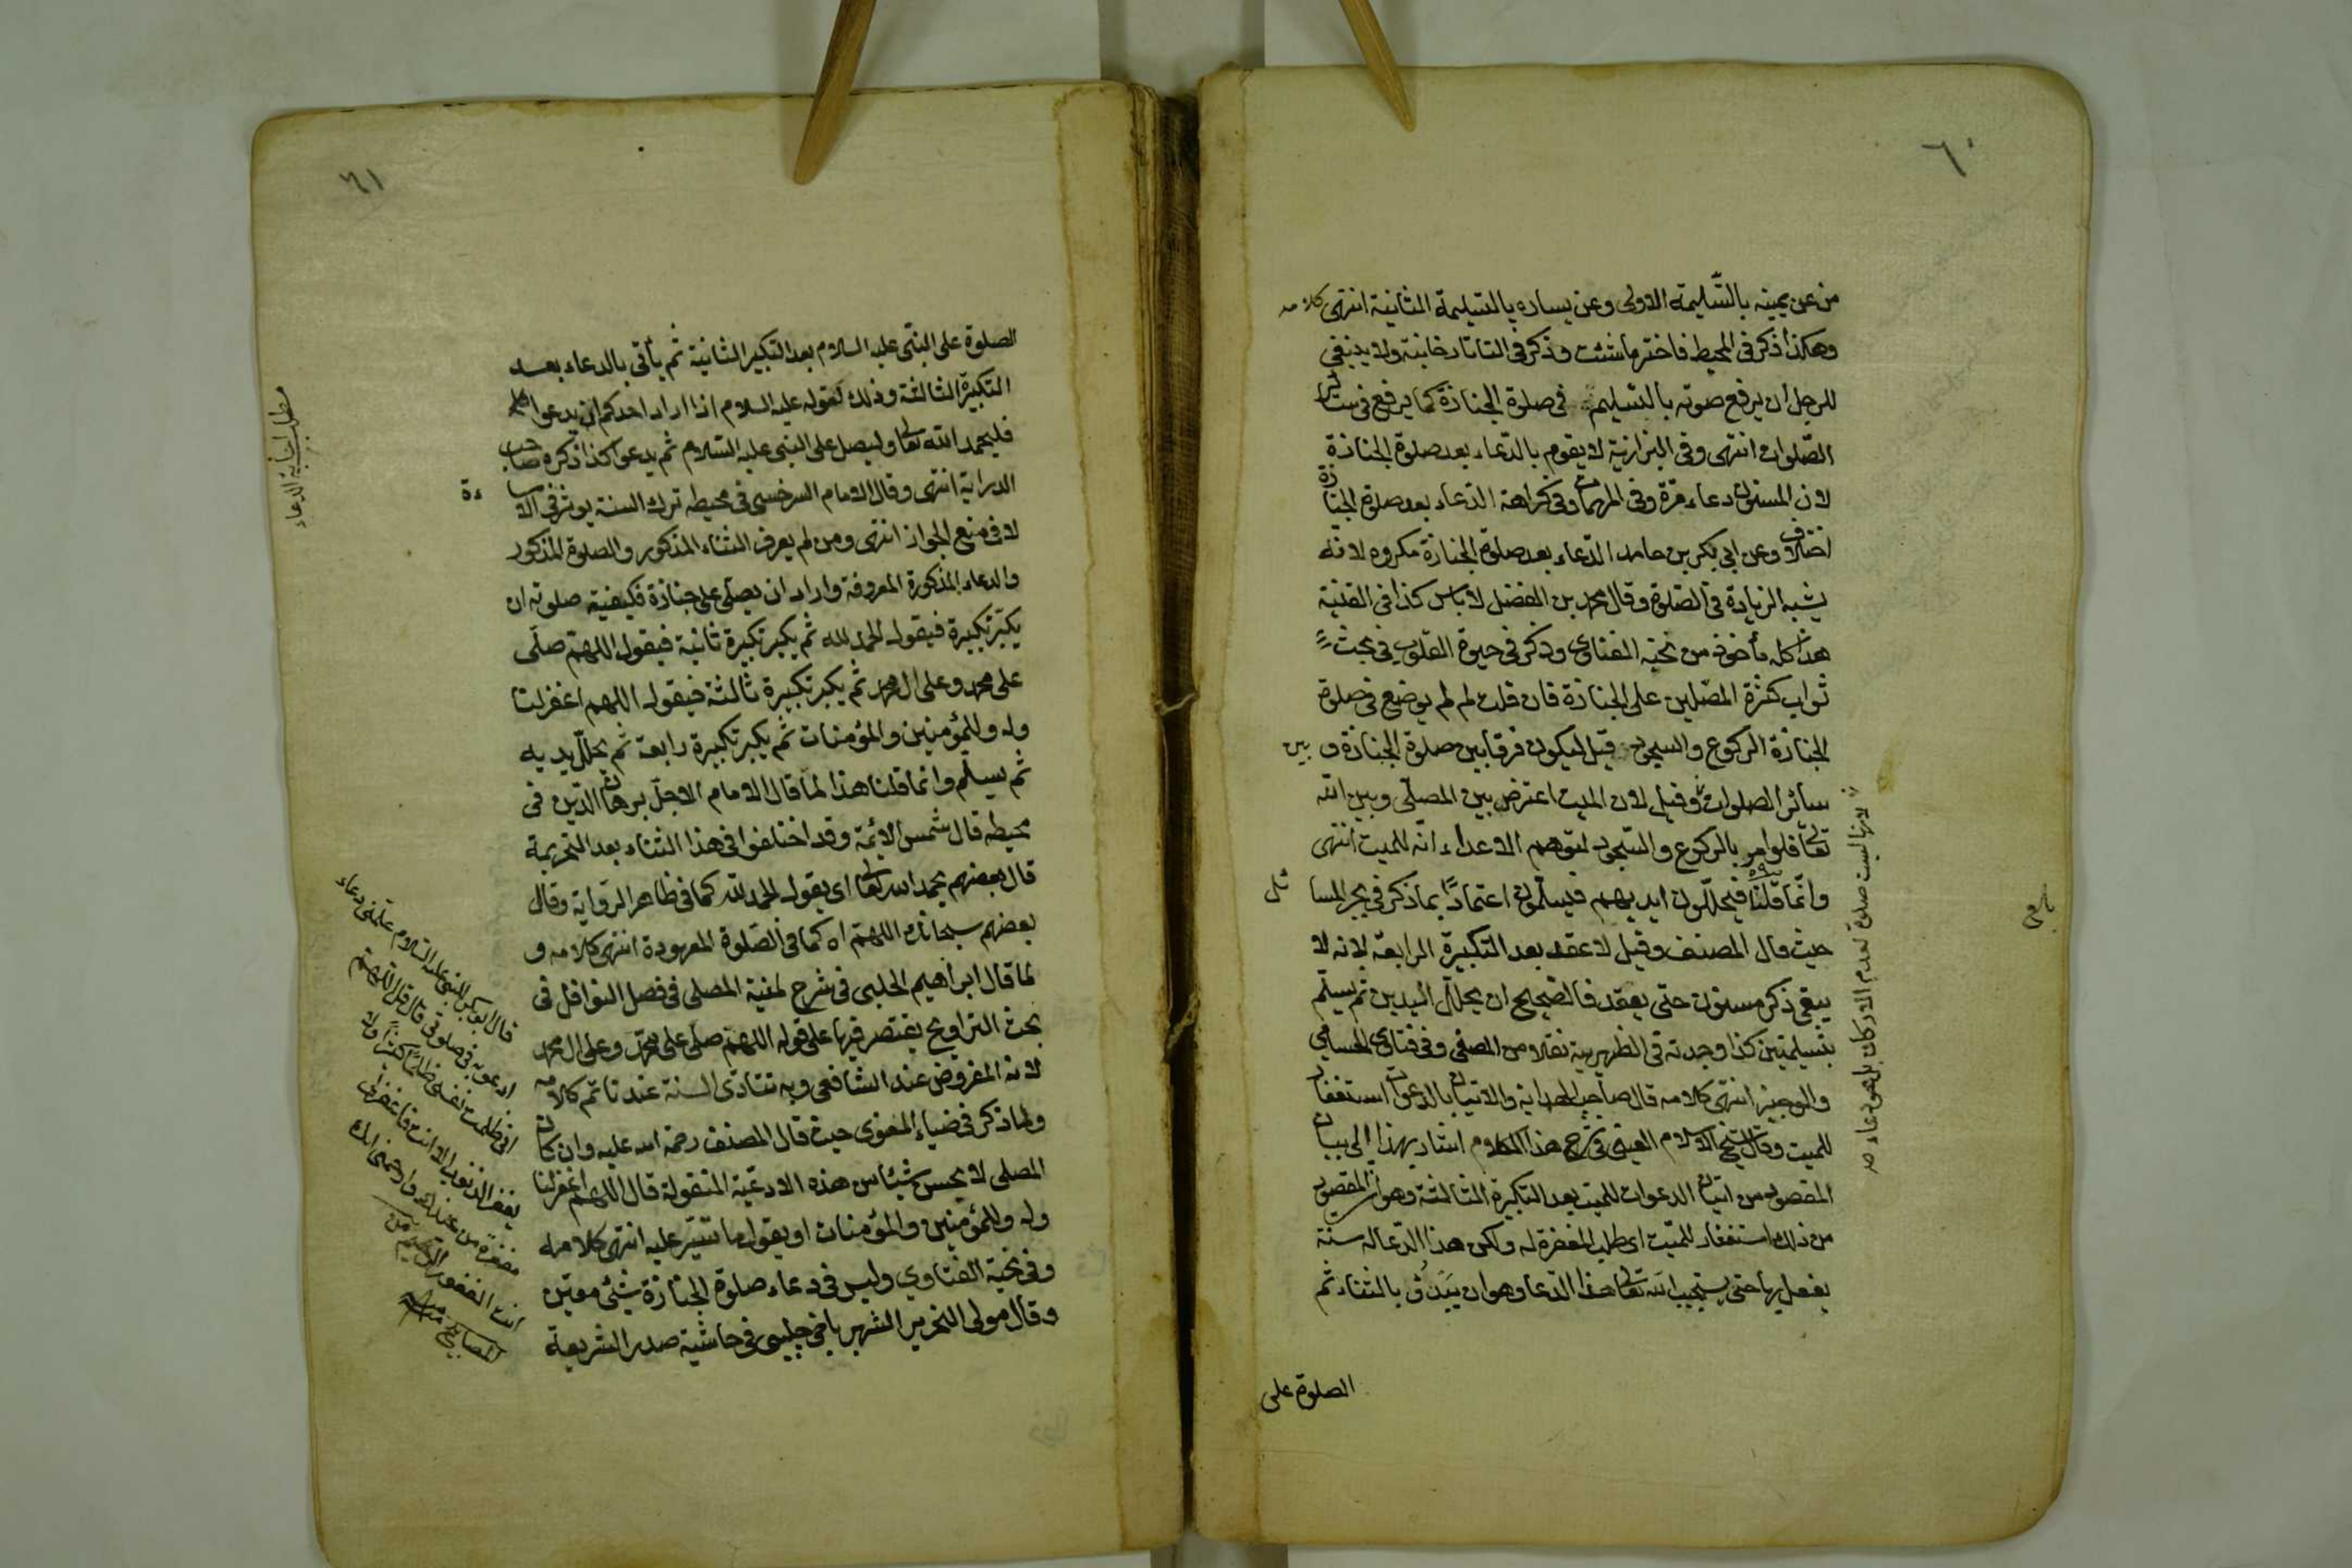 ٦٠
من عن يمينه بالتسليمة الاولى وعن يساره بالتسليمة الثانية انتهى كلامه
وهكذا ذكر فى المحيط فاختر ما شئت وذكر فى التاتارخانية ولا ينبغي
للرجل ان يرفع صوته بالتسليم فى صلوة الجنازة كما يرفع فى سائر
الصلوات انتهى وفى البزازية لا يقوم بالدعاء بعد صلوة الجنازة
لان المسنون دعاء مرة وفى المهمات وفى كراهة الدعاء بعد صلوة الجنازة
اختلاف وعن ابى بكر بن حامد الدعاء بعد صلوة الجنازة مكروه لانه
يشبه الزيادة فى الصلوة وقال محمد بن الفضل لا بأس كذا فى القنية
هذا كله مأخوذ من نخبة الفتاوى وذكر فى حيوة القلوب فى بحث
ثواب كثرة المصلين على الجنازة فان قلت لم لم يوضع فى صلوة
الجنازة الركوع والسجود قيل ليكون فرقا بين صلوة الجنازة و بين
سائر الصلوات وقيل لان الميت اعترض بين المصلى وبين الله
تعالى فلو امر بالركوع والسجود لتوهم الاعداء انه للميت انتهى
وانما قلنا فيحللون ايديهم فيسلمون اعتمادا بما ذكر فى بحر المسائل
حيث قال المصنف وقيل لا عقد بعد التكبيرة الرابعة لانه لا
يبقى ذكر مسنون حتى يعقد فالصحيح ان يحلل اليدين ثم يسلم
بتسليمتين كذا وجدته فى الظهيرية نقلا من المصفى وفى فتاوى الحسامى
والوجيز انتهى كلامه قال صاحب الهداية والاتيان بالدعوات استغفار
للميت وقال شيخ الاسلام العينى فى شرح هذا الكلام اشار بهذا الى بيان
المقصود من اتيان الدعوات للميت بعد التكبيرة الثالثة وهو ان المقصود
من ذلك استغفار للميت اى طلب المغفرة له ولكن هذا الدعاء له سنة
يفعل بها حتى يستجيب الله تعالى هذا الدعاء وهو ان يبدؤ بالثناء ثم
الصلوة على
لانها ليست صلوة لعدم الاركان بل هى دعاء
٦١
الصلوة على النبى عليه السلام بعد التكبير الثانية ثم يأتى بالدعاء بعد
التكبيرة الثالثة وذلك لقوله عليه السلام اذا اراد احدكم ان يدعوا
فليحمد الله تعالى وليصل على النبى عليه السلام ثم يدعوا كذا ذكره صاحب
الدراية انتهى وقال الامام السرخسى فى محيطه ترك السنة يوثر فى الاساءة
لا فى منع الجواز انتهى ومن لم يعرف الثناء المذكور والصلوة المذكور
والدعاء المذكورة المعروفة واراد ان يصلى على جنازة فكيفية صلوته ان
يكبر تكبيرة فيقول الحمد لله ثم يكبر تكبيرة ثانية فيقول اللهم صلى
على محمد وعلى ال محمد ثم يكبر تكبيرة ثالثة فيقول اللهم اغفر لنا
وله وللمؤمنين والمؤمنات ثم يكبر تكبيرة رابعة ثم يحلل يديه
ثم يسلم وانما قلنا هذا لما قال الامام الاجل برهان الدين فى
محيطه قال شمس الائمة وقد اختلفوا فى هذا الثناء بعد التحريمة
قال بعضهم يحمد الله تعالى اى يقول الحمد لله كما فى ظاهر الرواية وقال
بعضهم سبحانك اللهم اه كما فى الصلوة المعهودة انتهى كلامه و
لما قال ابراهيم الحلبى فى شرح لمنية المصلى فى فصل النوافل فى
بحث التراويح يقتصر فيها على قوله اللهم صلى على محمد وعلى ال محمد
لانه المفروض عند الشافعى وبه تتادى السنة عندنا تم كلامه
ولما ذكر فى ضياء المعنوى حيث قال المصنف رحمة الله عليه وان كان
المصلى لا يحسن شيئا من هذه الادعية المنقولة قال اللهم اغفر لنا
وله وللمؤمنين والمؤمنات او يقول ما تيسر عليه انتهى كلامه
وفى نخبة الفتاوي وليس فى دعاء صلوة الجنازة شئى موقتن
وقال مولى النحرير الشهير باخى چلپى فى حاشية صدر الشريعة
مطلب اجابة الدعاء
قال ابو بكر للنبى عليه السلام علمنى دعاء
ادعو به فى صلوتى قال قل اللهم
انى ظلمت نفسى ظلما كثيرا ولا
يغفر الذنوب الا انت فاغفر لى
مغفرة من عندك وارحمنى انك
انت الغفور الرحيم من
المصابيح